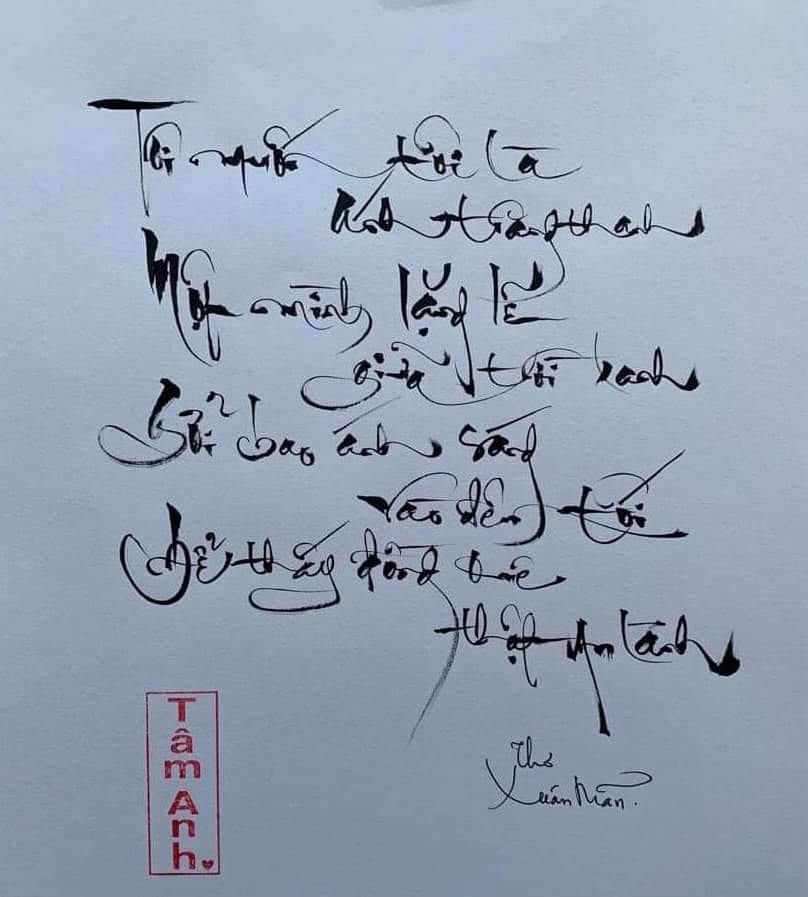 Tôi muốn tôi là
Ánh trăng thanh
Một mình lặng lẽ
giữa trời xanh
Gửi bao ánh sáng
vào đêm tối
Để thấy dòng
thật an lành
Thơ
Xuân
Tâm Anh